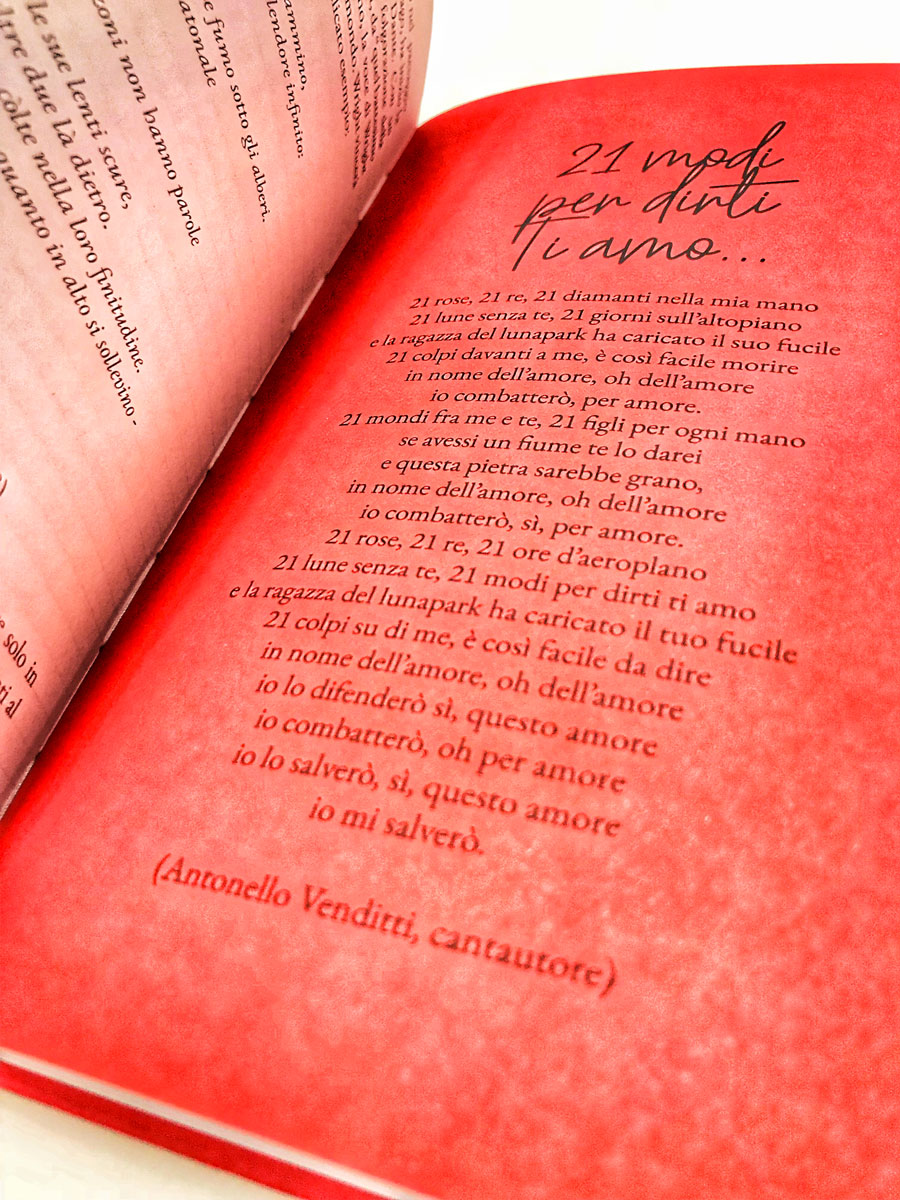 ammino,
lendore infinito:
e fumo sotto gli alberi.
atonale
zoni non hanno parole
le sue lenti scure,
tre due là dietro.
còlte nella loro finitudine.
quanto in alto si sollevino -
solo in
21 modi
per dirti
Ti amo...
21 rose, 21 re, 21 diamanti nella mia mano
21 lune senza te, 21 giorni sull'altopiano
e la ragazza del lunapark ha caricato il suo fucile
21 colpi davanti a me, è così facile morire
in nome dell'amore, oh dell'amore
io combatterò, per amore.
21 mondi fra me e te, 21 figli per ogni mano
se avessi un fiume te lo darei
e questa pietra sarebbe grano,
in nome dell'amore, oh dell'amore
io combatterò, sì, per amore.
21 rose, 21 re, 21 ore d'aeroplano
21 lune senza te, 21 modi per dirti ti amo
e la ragazza del lunapark ha caricato il tuo fucile
21 colpi su di me, è così facile da dire
in nome dell'amore, oh dell'amore
io lo difenderò sì, questo amore
io combatterò, oh per amore
io lo salverò, sì, questo amore
io mi salverò.
(Antonello Venditti, cantautore)